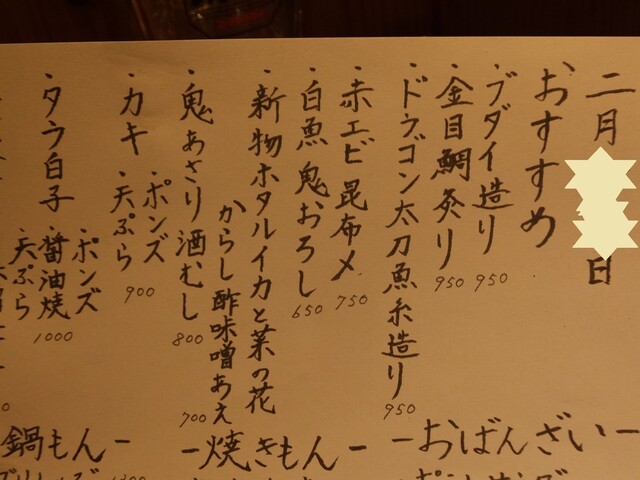 二月 日
おすすめ
・ブダイ造り 950
・金目鯛炙り 950
・ドラゴン太刀魚糸造り 950
・赤エビ昆布〆 750
・白魚鬼おろし 650
・新物ホタルイカと菜の花
からし酢味噌あえ 700
・鬼あさり酒むし 800
・カキ ・ポンズ
・天ぷら 900
・タラ白子 ・ポンズ
・醤油焼 1000
・天ぷら
ーおばんざいー
ー焼きもんー
鍋もんー